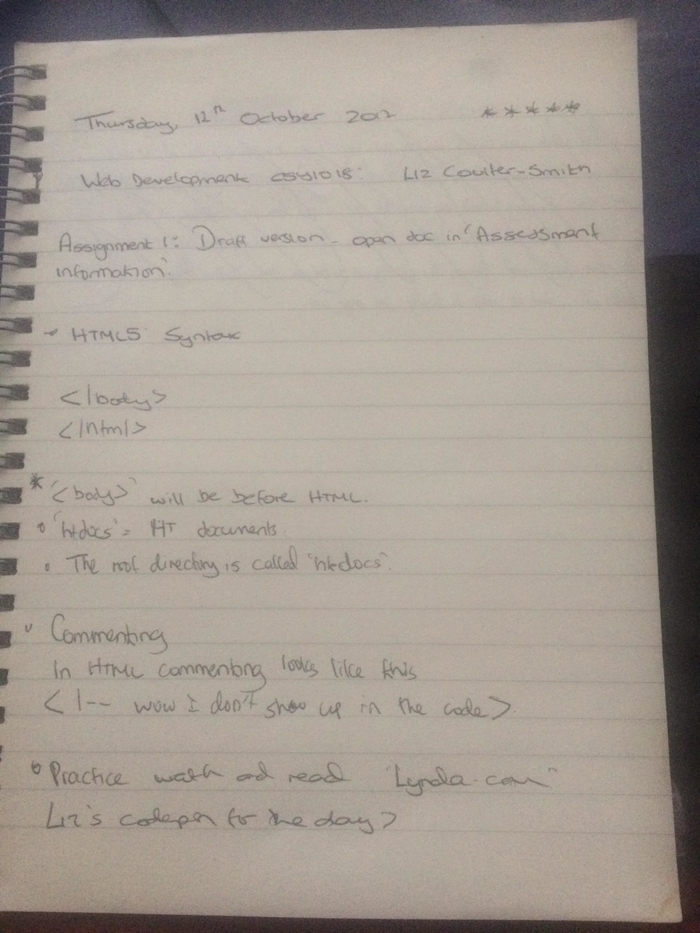 Thursday, 12th October 2017 *****
Web Development CSY1018: Liz Coulter-Smith
Assignment 1: Draft version - open doc in 'Assessment
information'.
- HTML5 Syntax
</body>
</html>
* '<body>' will be before HTML.
• 'htdocs' = HT documents.
• The root directory is called 'htdocs'.
• Commenting
In HTML commenting looks like this
<!-- wow I don't show up in the code>.
• Practice watch and read "Lynda.com"
Liz's codepen for the day>